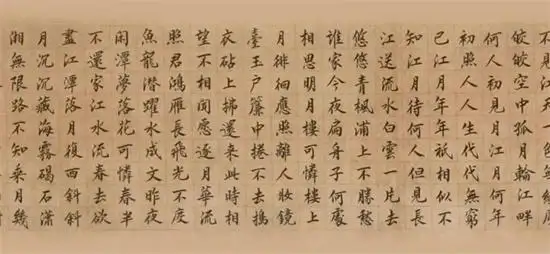 皎皎空中孤月輪江畔
何人初見月江月何年
初照人人生代代無窮
已江月年年祇相似不
知江月待何人但見長
江送流水白雲一片去
悠悠青楓浦上不勝愁
誰家今夜扁舟子何處
相思明月樓可憐樓上
月徘徊應照離人妝鏡
臺玉户簾中捲不去搗
衣砧上拂還來此時相
望不相聞願逐月華流
照君鴻雁長飛光不度
魚龍潛躍水成文昨夜
閑潭夢落花可憐春半
不還家江水流春去欲
盡江潭落月復西斜斜
月沉沉藏海霧碣石瀟
湘無限路不知乘月幾